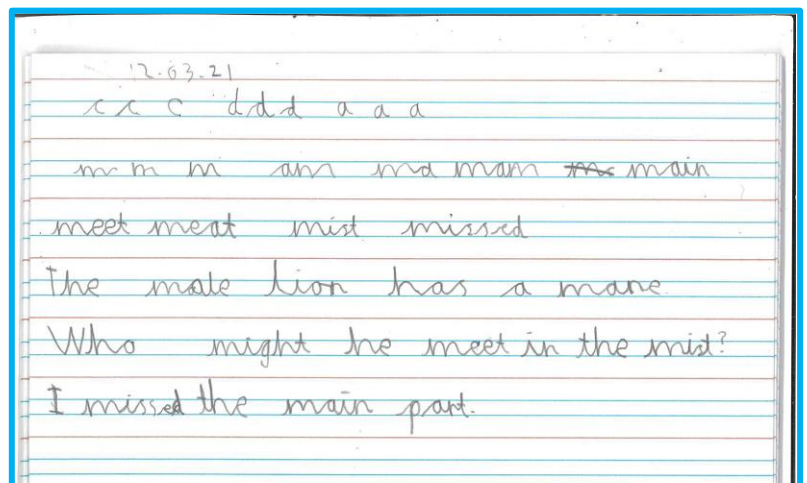 12.03.21
c c c d d d a a a
m m m am ma mam main
meet meat mist missed
The male lion has a mane.
Who might he meet in the mist?
I missed the main part.